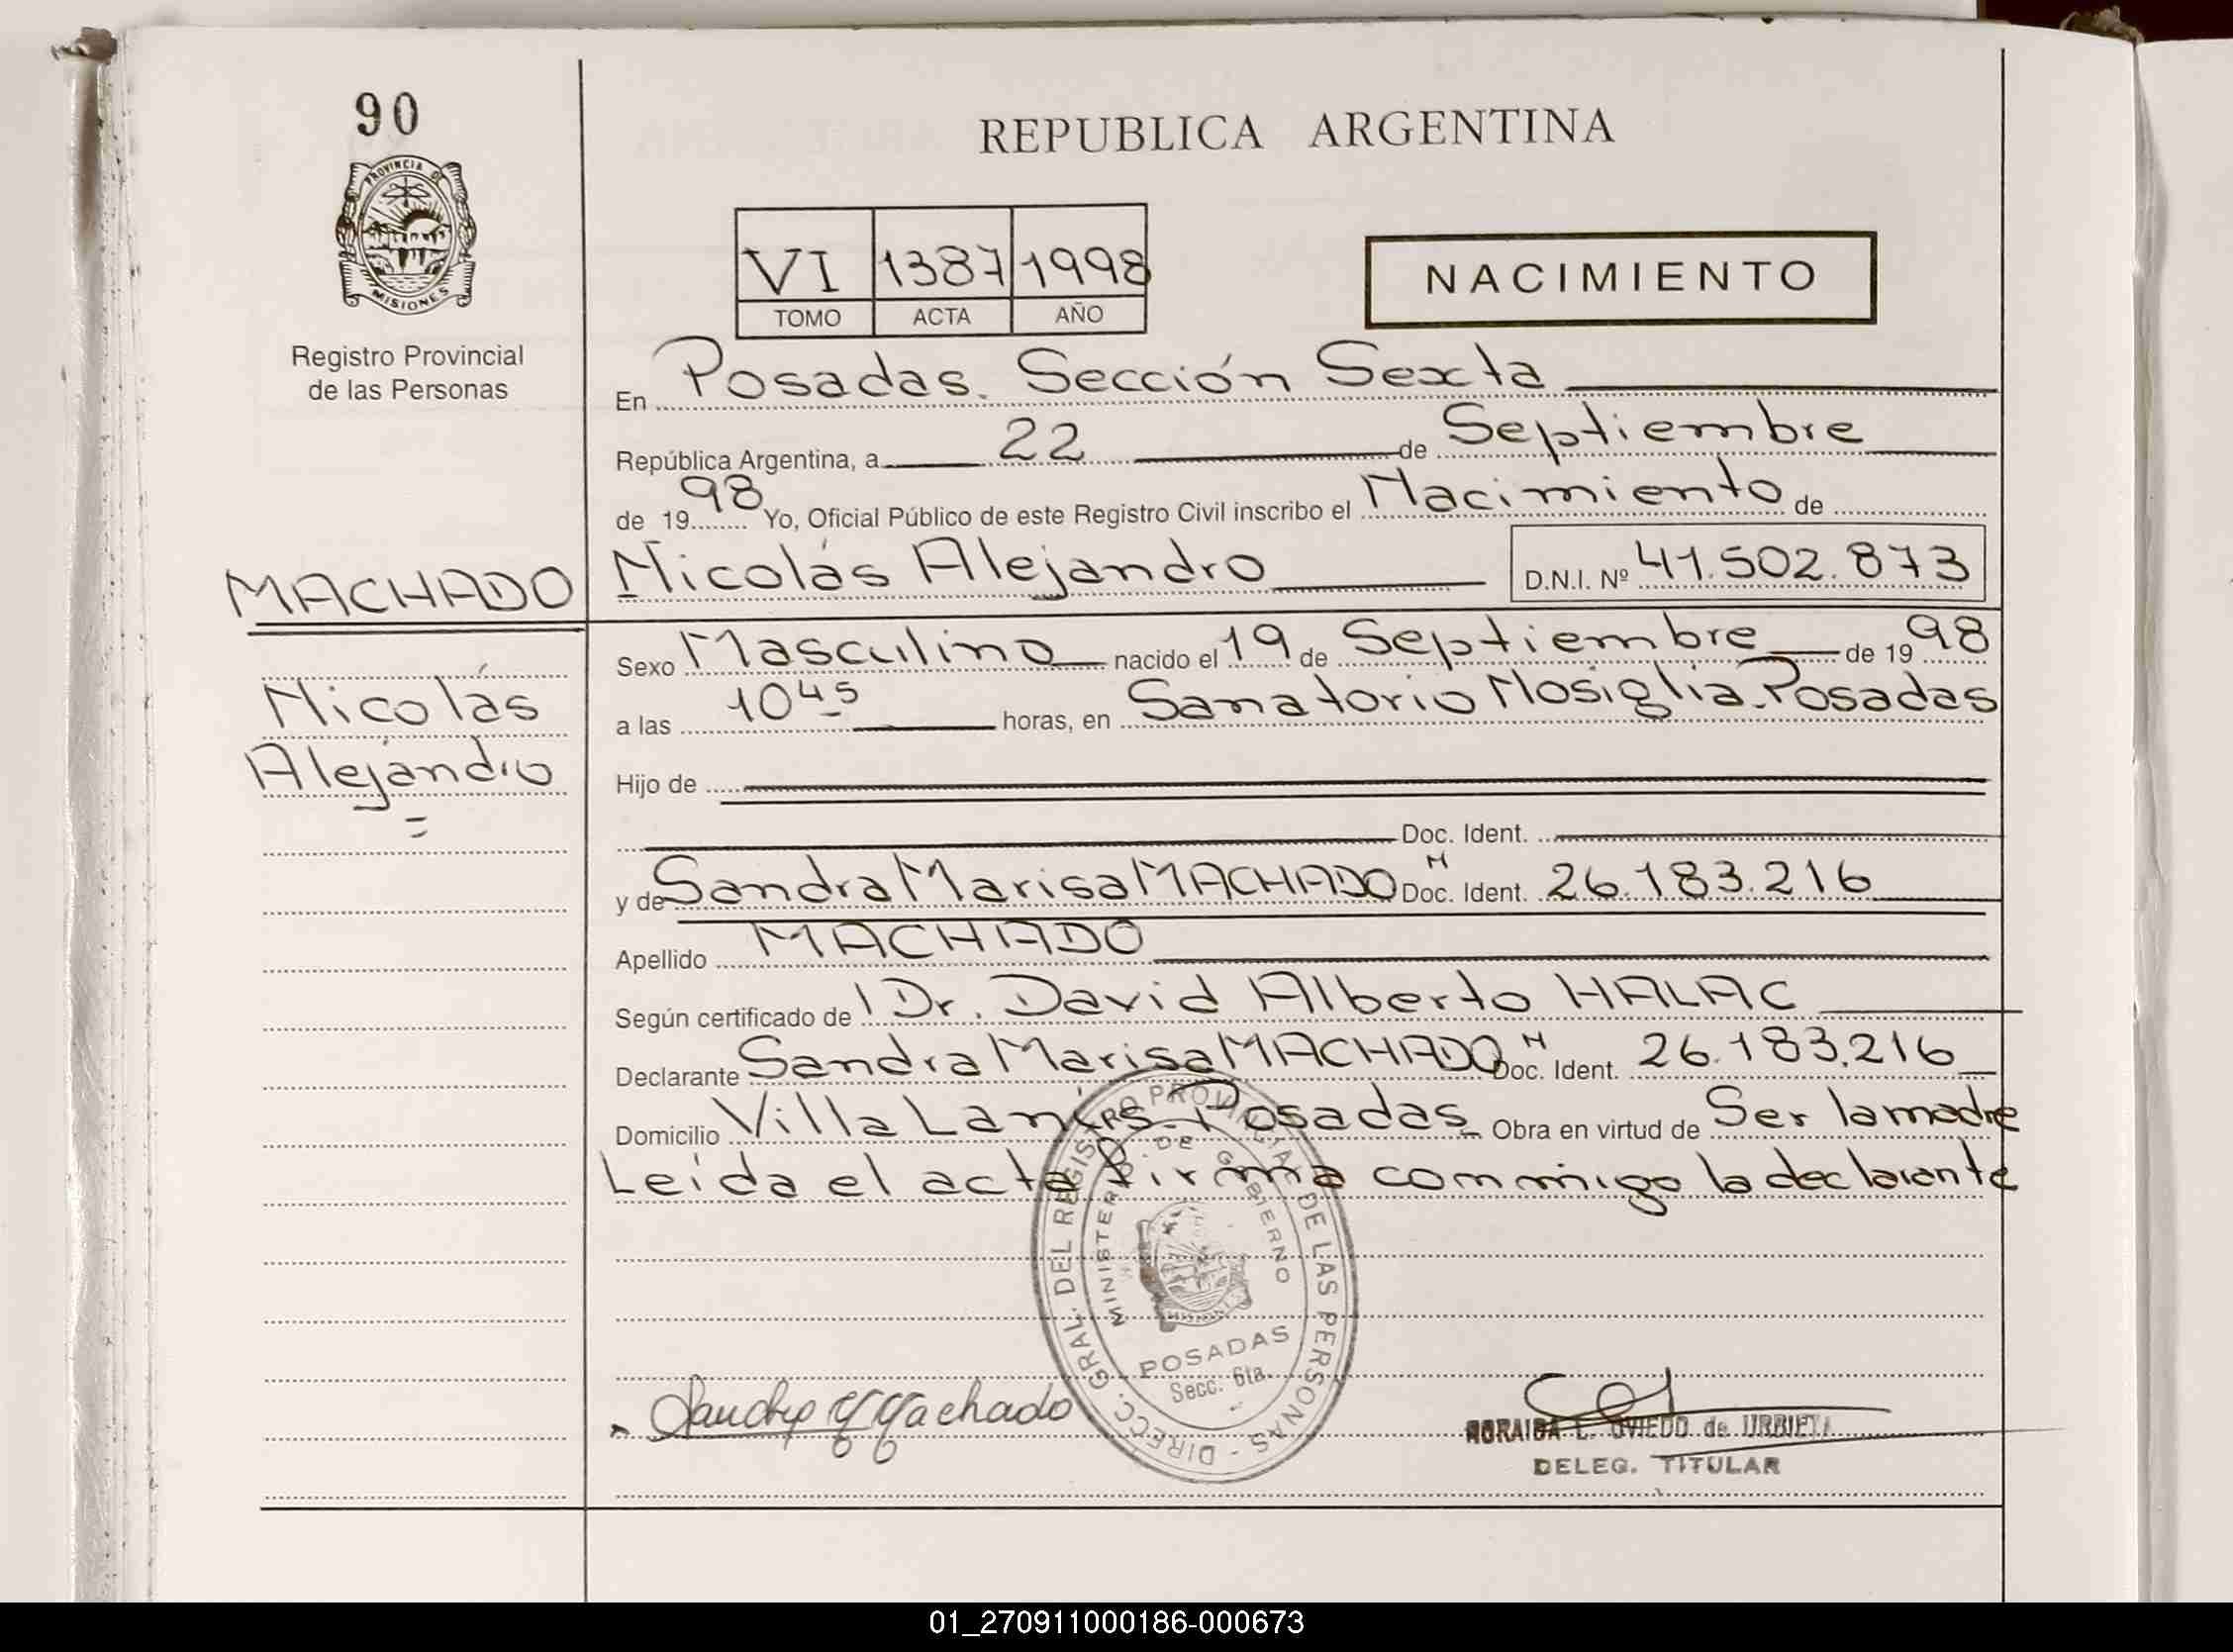 90
PROVINCIA DE
MISIONES
Registro Provincial
de las Personas
REPUBLICA ARGENTINA
VI 1387 1998
TOMO ACTA AÑO
NACIMIENTO
En Posadas. Sección Sexta
República Argentina, a 22 de Septiembre
de 1998 Yo, Oficial Público de este Registro Civil inscribo el Nacimiento de
MACHADO
Nicolás
Alejandro
=
Nicolás Alejandro D.N.I. Nº 41.502.873
Sexo Masculino nacido el 19 de Septiembre de 1998
a las 10 45 horas, en Sanatorio Nosiglia. Posadas
Hijo de
Doc. Ident.
y de Sandra Marisa MACHADO Doc. Ident. 26.183.216
Apellido MACHADO
Según certificado de Dr. David Alberto HALAC
Declarante Sandra Marisa MACHADO Doc. Ident. 26.183.216
Domicilio Villa Lanús. Posadas Obra en virtud de Ser la madre
Leída el acta firma conmigo la declarante
DIRECC. GRAL. DEL REGISTRO PROVINCIAL DE LAS PERSONAS -
MINISTERIO DE GOBIERNO
POSADAS
Secc. 6ta.
Machado
OVIEDO de URBIETA
DELEG. TITULAR
01_270911000186-000673